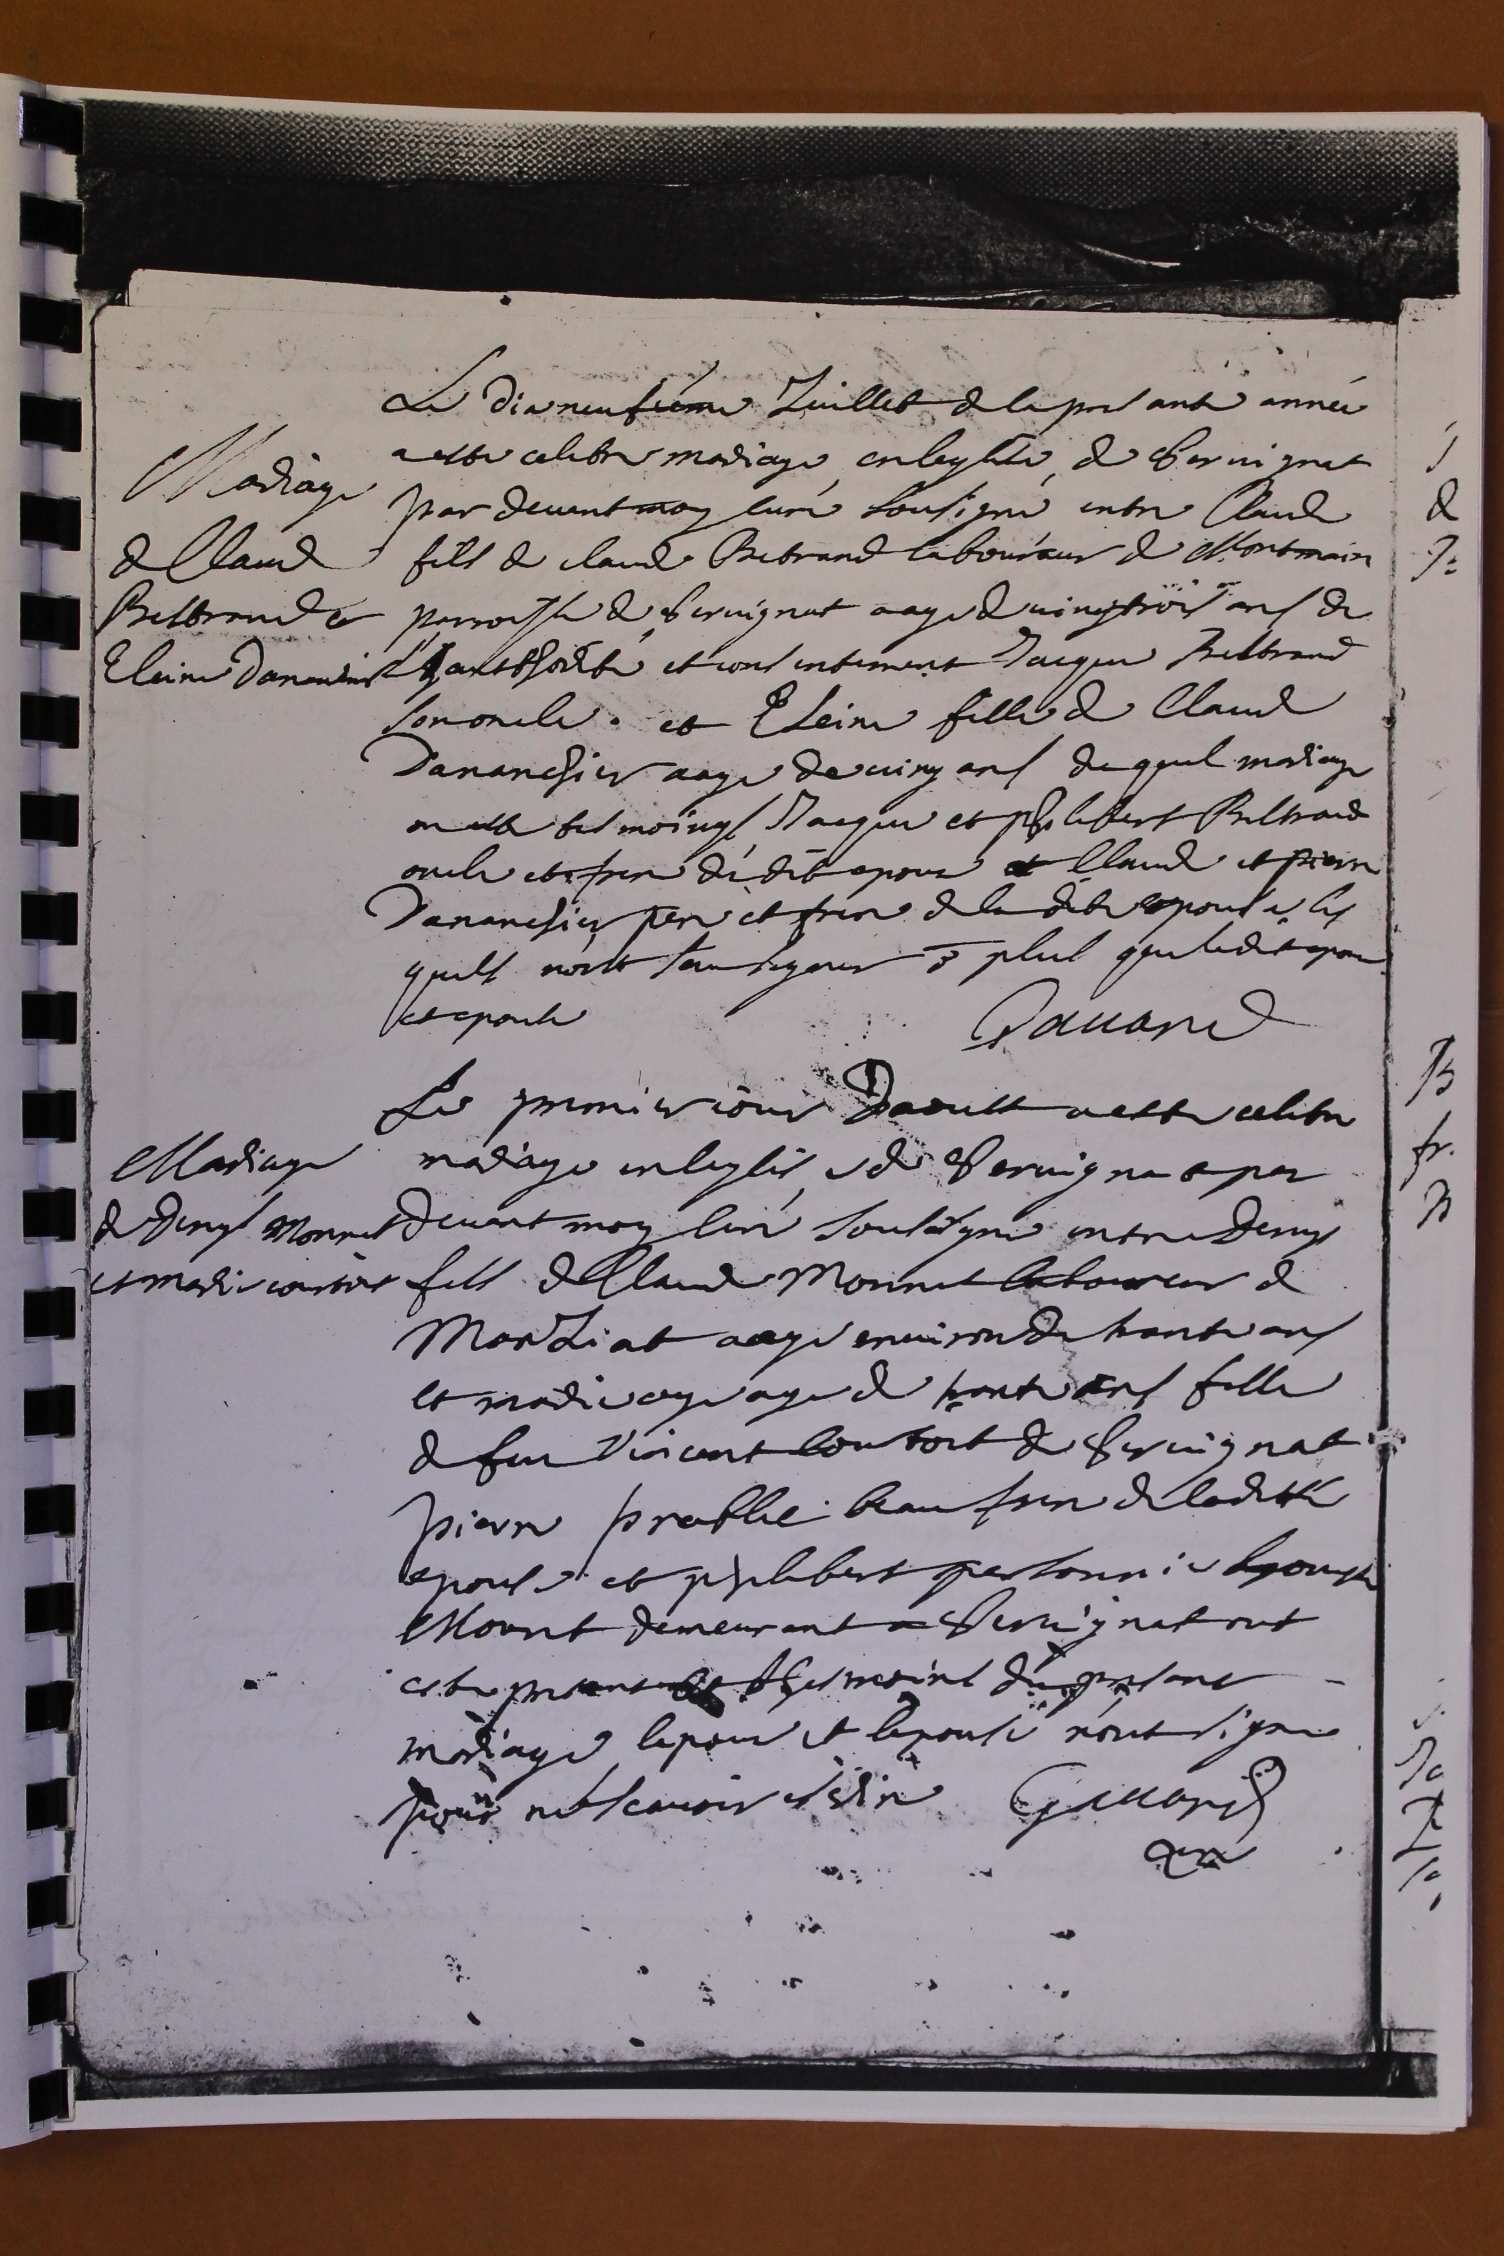 Mariage
de Claud
Beltrand et
Eleine Dananchier
Le dixneufieme Juillet de la presante année
a esté celebré mariage en leglise de Servignat
par devent moy curé sousigné entre Claude
fils de claude Beltrand laboureur de Montmain
parroisse de Servignat aagé de vingtrois ans de
lauthorité et consentement Jacque Beltrand
son oncle. et Eleine fille de Claude
Dananchier aagé de vingt ans duquel mariage
on esté tesmoings Jacque et philebert Beltrand
oncle et frere dédit epoux et Claude et pierre
Dananchier pere et frere de la dite epouse les
quels nont seu signer ō plus que ledit epoux
et epouse
Gavand
Mariage
de Denys Monnet
et marie courtois
Le premier iour Daoust a esté celebré
mariage en leglise de Servignat par
devent moy curé sousigné entre Denys
fils de Claude Monnet laboureur de
Marziat aagé environ de trante ans
et marie agé de trante ans fille
de feu Vincent Courtoit de Servignat
pierre beau frere de laditte
epouse et philebert
Monnet demeurant a Servignat ont
esté presant et thesmoins du presant
mariage lepoux et lepouse nont signé
pour ne scavoir
Gavand
curé